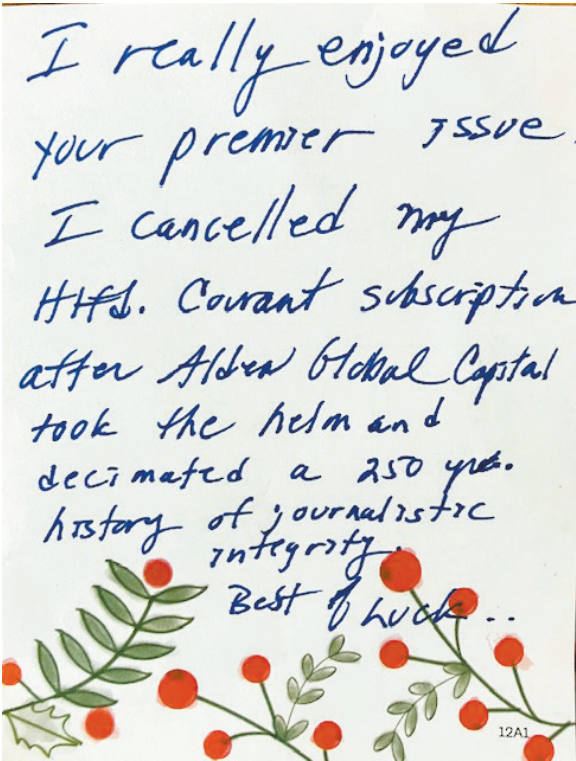 I really enjoyed
your premier issue.
I cancelled my
Htfd. Courant subscription
after Alden Global Capital
took the helm and
decimated a 250 yr.
history of journalistic
integrity.
Best of Luck..
12A1